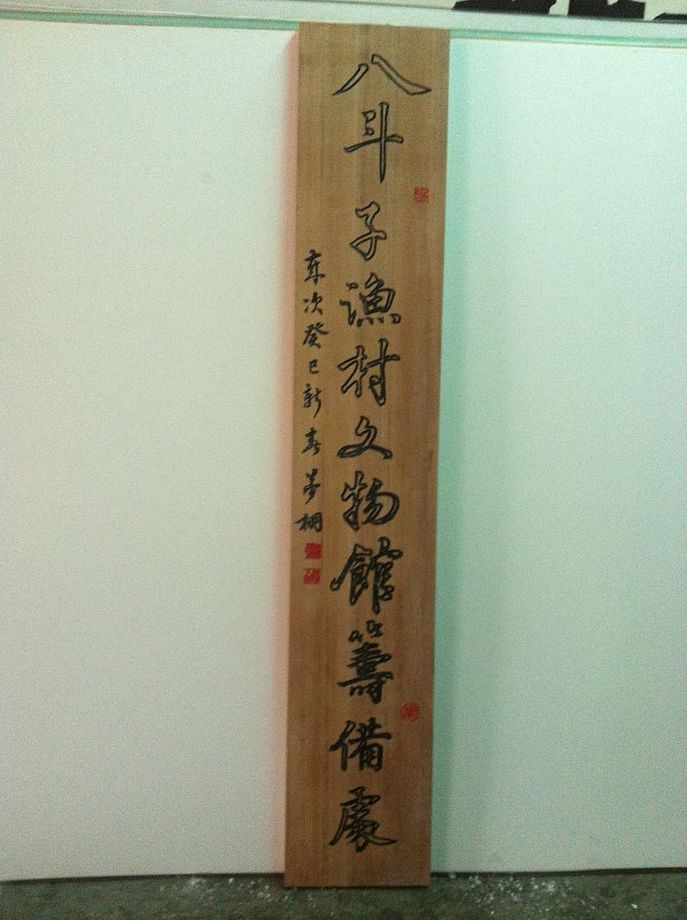 八斗子漁村文物館籌備處
歲次癸巳新春夢楜